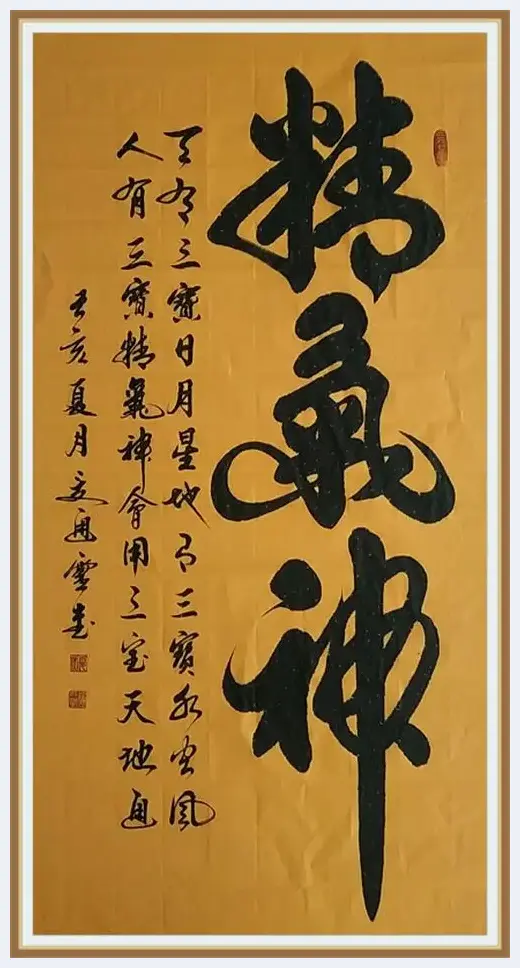 精氣神
天有三寶日月星地有三寶水火風
人有三寶精氣神會用三宝天地通
亥夏月